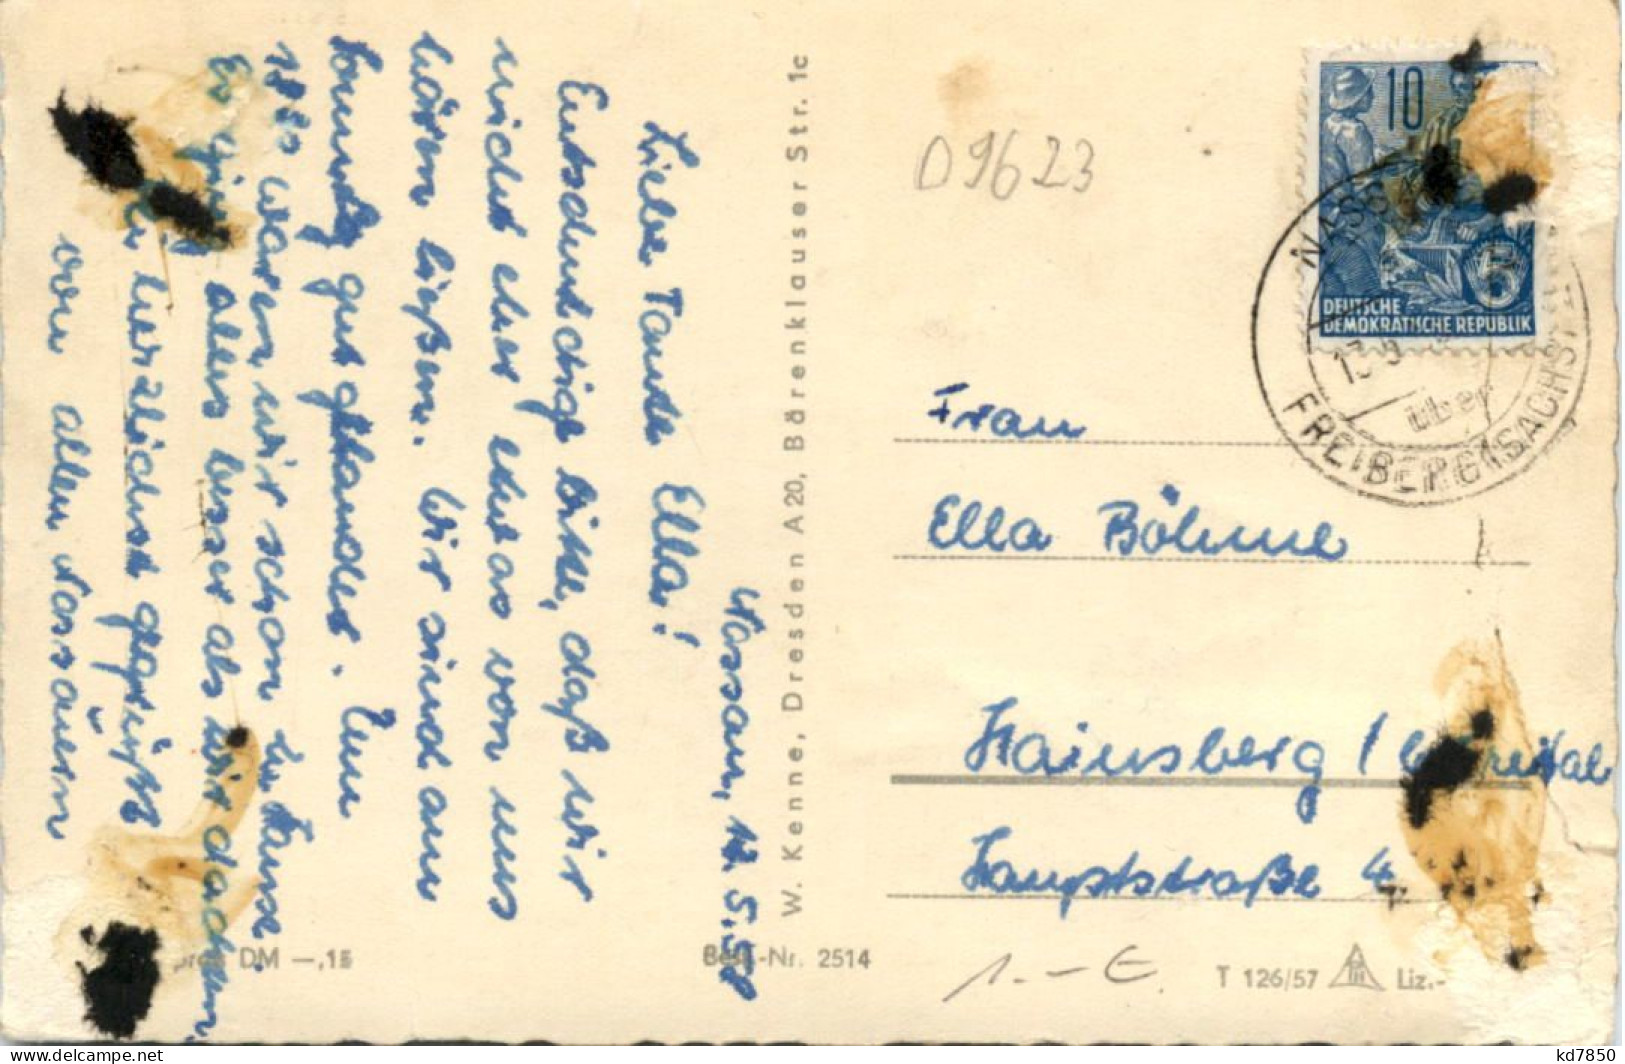 Nassau, 12.5.58
Liebe Tante Ella!
Entschuldige bitte, daß wir
nicht eher etwas von uns
hören ließen. Wir sind am
Sonntag gut gelandet. Um
18³⁰ waren wir schon zu Hause.
Es ging alles besser als wir dachten.
herzlichst gegrüßt
von allen Nassauern
W. Kenne, Dresden A 20, Bärenklauser Str. 1c
DM —,15
Best.-Nr. 2514
D9623
10
5
DEUTSCHE
DEMOKRATISCHE REPUBLIK
NASSAU
über
FREIBERG (SACHS)
Frau
Ella Böhme
Hainsberg / b Freital
Hauptstraße 4
1.- €
T 126/57 Liz.-
kd7850